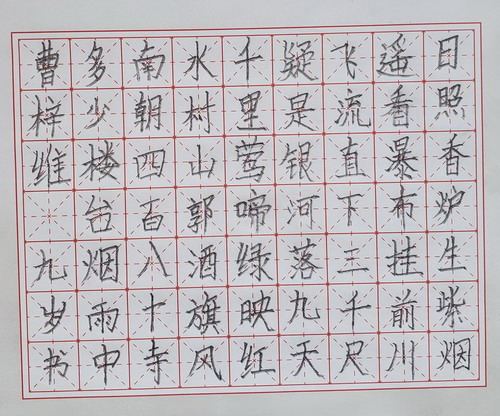 日照香炉生紫烟
遥香暴布挂前川
飞流直下三千尺
疑是银河落九天
千里莺啼绿映红
水村山郭酒旗风
南朝四百八十寺
多少楼台烟雨中
曹梓维 九岁书